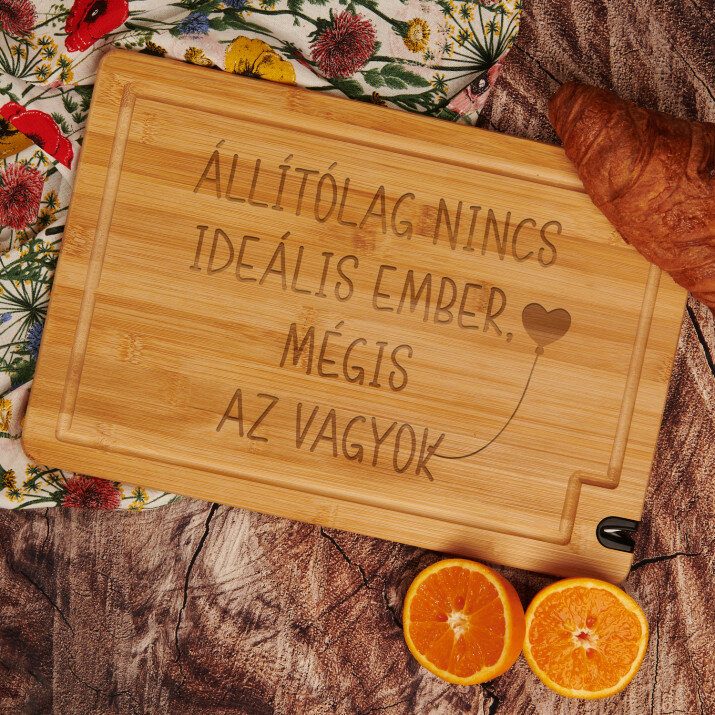 ÁLLÍTÓLAG NINCS
IDEÁLIS EMBER,
MÉGIS
AZ VAGYOK